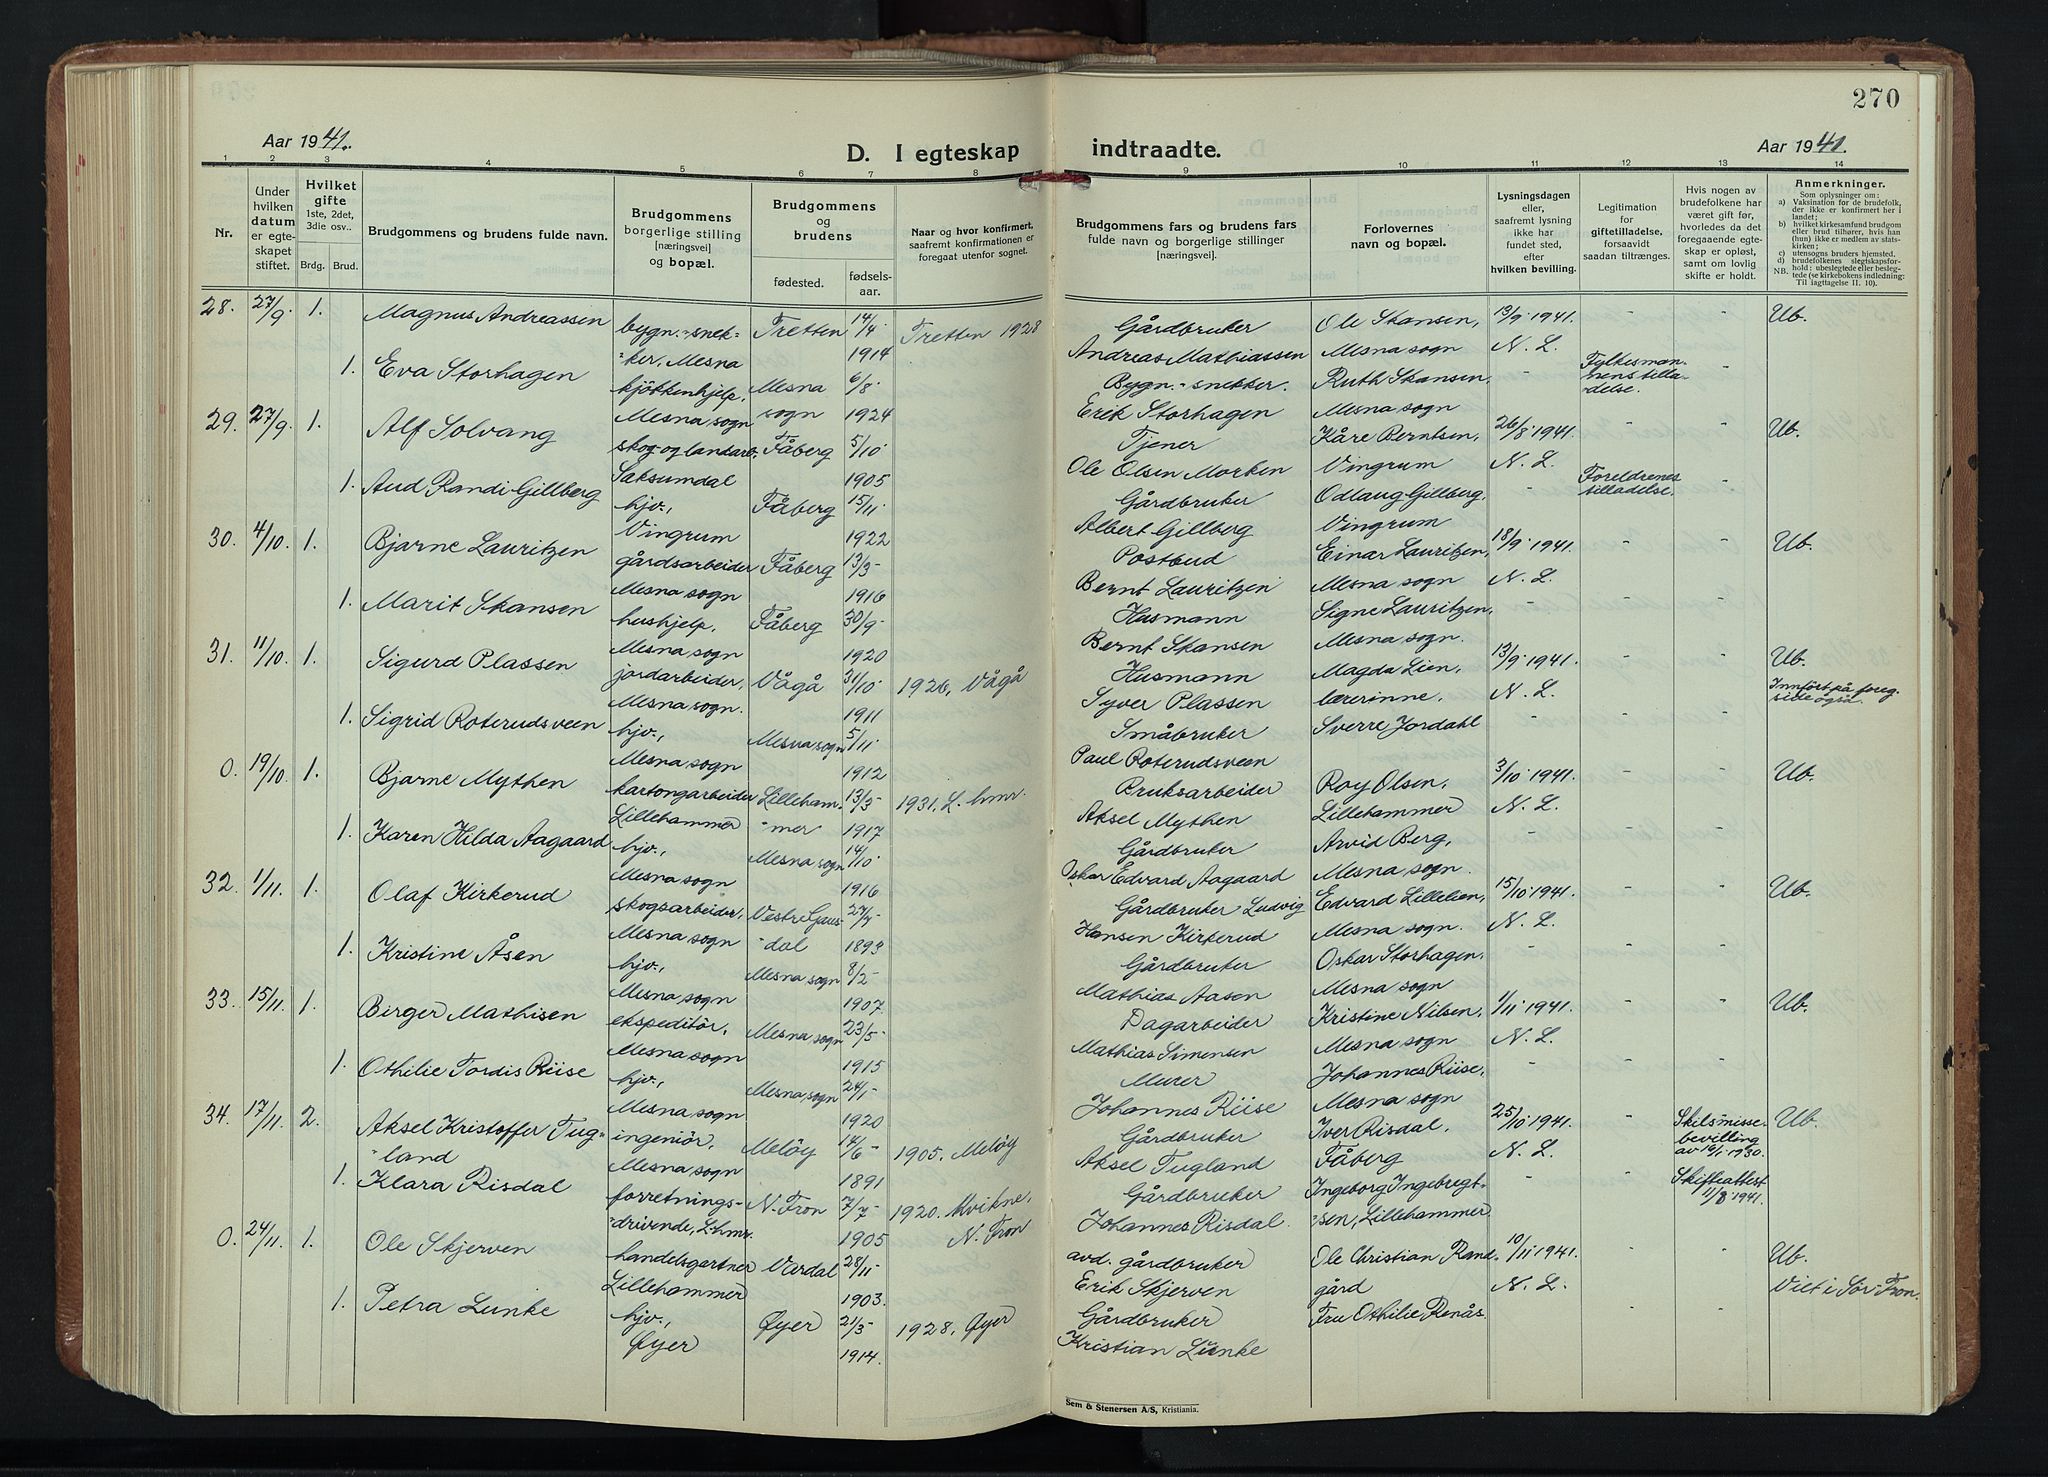 270
Aar 1941.
D. I egteskap indtraadte.
Aar 1941.
1 2 3 4 5 6 7 8 9 10 11 12 13 14
Nr.
Under hvilken datum er egteskapet stiftet.
Hvilket gifte 1ste, 2det, 3die osv..
Brdg. Brud.
Brudgommens og brudens fulde navn.
Brudgommens borgerlige stilling [næringsvei] og bopæl.
Brudgommens og brudens
fødested.
fødselsaar.
Naar og hvor konfirmert, saafremt konfirmationen er foregaat utenfor sognet.
Brudgommens fars og brudens fars fulde navn og borgerlige stillinger [næringsvei].
Forlovernes navn og bopæl.
Lysningsdagen eller, saafremt lysning ikke har fundet sted, efter hvilken bevilling.
Legitimation for giftetilladelse, forsaavidt saadan tiltrænges.
Hvis nogen av brudefolkene har været gift før, hvorledes da det foregaaende egteskap er opløst, samt om lovlig skifte er holdt.
Anmerkninger.
Som oplysninger om:
a) Vaksination for de brudefolk, der ikke er konfirmert her i landet;
b) hvilket kirkesamfund brudgom eller brud tilhører, hvis han (hun) ikke er medlem av statskirken;
c) utensogns bruders hjemsted.
d) brudefolkenes slegtskapsforhold: ubeslegtede eller beslegtede (se kirkebokens indledning:
NB. Til iagttagelse II. 10).
28. 27/9 1. Magnus Andreassen bygn.-snekker, Mesna Tretten 14/4 1914 Tretten 1928 Gårdbruker Andreas Mathiassen Ole Skansen, Mesna sogn 13/9 1941. N. L. - - Ub.
1. Eva Storhagen kjökkenhjelp, Mesna sogn Mesna sogn 6/8 1924 Bygn.-snekker Erik Storhagen Ruth Skansen, Mesna sogn - Fylkesmannens tilladelse. -
29. 27/9 1. Alf Solvang skog- og landarb. Saksumdal Fåberg 5/10 1905 Tjener Ole Olsen Morken Kåre Berntsen, Vingrum 26/8 1941. N. L. - - Ub.
1. Aud Randi Gillberg hjv., Vingrum Fåberg 15/11 1922 Gårdbruker Albert Gillberg Odlaug Gillberg, Vingrum - Foreldrenes tilladelse. -
30. 4/10 1. Bjarne Lauritzen gårdsarbeider Mesna sogn Fåberg 13/3 1916 Postbud Bernt Lauritzen Einar Lauritzen, Mesna sogn 18/9 1941. N. L. - - Ub.
1. Marit Skansen hushjelp, Mesna sogn Fåberg 30/9 1920 Husmann Bernt Skansen Signe Lauritzen, Mesna sogn. - - -
31. 11/10 1. Sigurd Plassen jordarbeider, Mesna sogn. Vågå 31/10 1911 1926, Vågå Husmann Syver Plassen Magda Lien, lærerinne, 13/9 1941. N. L. - - Ub. Innfört på foreg. side også.
1. Sigrid Roterudsveen hjv., Mesna sogn Mesna sogn 5/11 1912 Småbruker Paul Roterudsveen Sverre Jordahl - - -
0. 19/10 1. Bjarne Mythen kartongarbeider Lillehammer Lillehammer 13/3 1917 1931. L.hmr. Bruksarbeider Aksel Mythen Roy Olsen, Lillehammer 3/10 1941. N. L. - - Ub.
1. Karen Hilda Aagaard hjv., Mesna sogn Mesna sogn 14/10 1916 Gårdbruker Oskar Edvard Aagaard Arvid Berg, Mesna sogn. - - -
32. 1/11. 1. Olaf Kirkerud skogsarbeider, Mesna sogn Vestre Gausdal 27/7 1893 Gårdbruker Ludvig Hansen Kirkerud Edvard Lillelien, Mesna sogn. 15/10 1941. N. L. - - Ub.
1. Kristine Åsen hjv., Mesna sogn Mesna sogn 8/2 1907 Gårdbruker Mathias Aasen Oskar Storhagen, Mesna sogn - - -
33. 15/11. 1. Birger Mathisen ekspeditör, Mesna sogn Mesna sogn 23/5 1915 Dagarbeider Mathias Simensen Kristine Nilsen, Mesna sogn 1/11 1941. N. L. - - Ub.
1. Othilie Tordis Riise hjv., Mesna sogn Mesna sogn 24/1 1920 Murer Johannes Riise Johannes Riise, Mesna sogn - - -
34. 17/11. 2. Aksel Kristoffer Fugland ingeniör, Mesna sogn Melöy 14/6 1891 1905. Melöy Gårdbruker Aksel Fugland Iver Risdal, Fåberg 25/10 1941. N. L. - Skilsmisse bevilling av 16/1 1930. Ub.
1. Klara Risdal forretningsdrivende, L.hmr. N. Fron 7/7 1905 1920. Kvikne, N. Fron Gårdbruker Johannes Risdal Ingeborg Ingebrigtsen, Lillehammer - - Skifteattest 11/8 1941.
0. 24/11. 1. Ole Skjerven handelsgartner Lillehammer Vardal 28/11 1903. avd. gårdbruker Erik Skjerven Ole Christian Randgård 10/11 1941. N. L. - - Ub. Viet i Sör-Fron.
1. Petra Lunke hjv., Øyer Øyer 21/3 1914. 1928, Øyer Gårdbruker Kristian Lunke Fru Othilie Renås. - - -
Sem & Stenersen A/S, Kristiania.